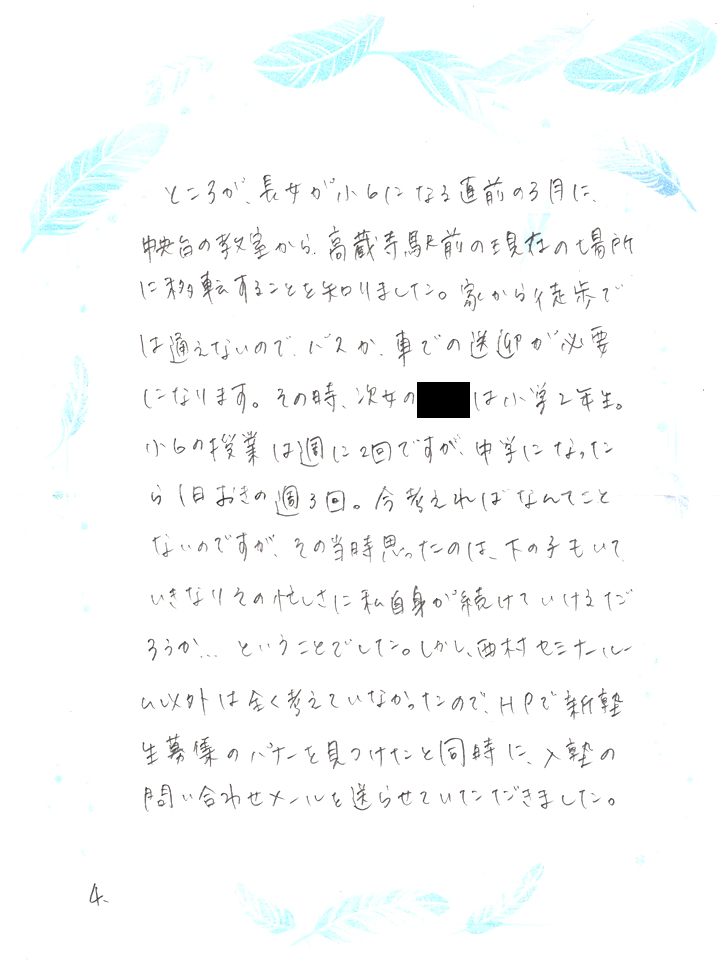 ところが、長女が小6になる直前の3月に、
中央台の教室から、高蔵寺駅前の現在の場所
に移転することを知りました。家から徒歩で
は通えないので、バスか、車での送迎が必要
になります。その時、次女の は小学2年生。
小6の授業は週に2回ですが、中学になった
ら1日おきの週3回。今考えればなんてこと
ないのですが、その当時思ったのは、下の子もいて、
いきなりその忙しさに私自身が続けていけるだ
ろうか… ということでした。しかし、西村セミナールー
ム以外は全く考えていなかったので、HPで新塾
生募集のバナーを見つけたと同時に、入塾の
問い合わせメールを送らせていただきました。
4、